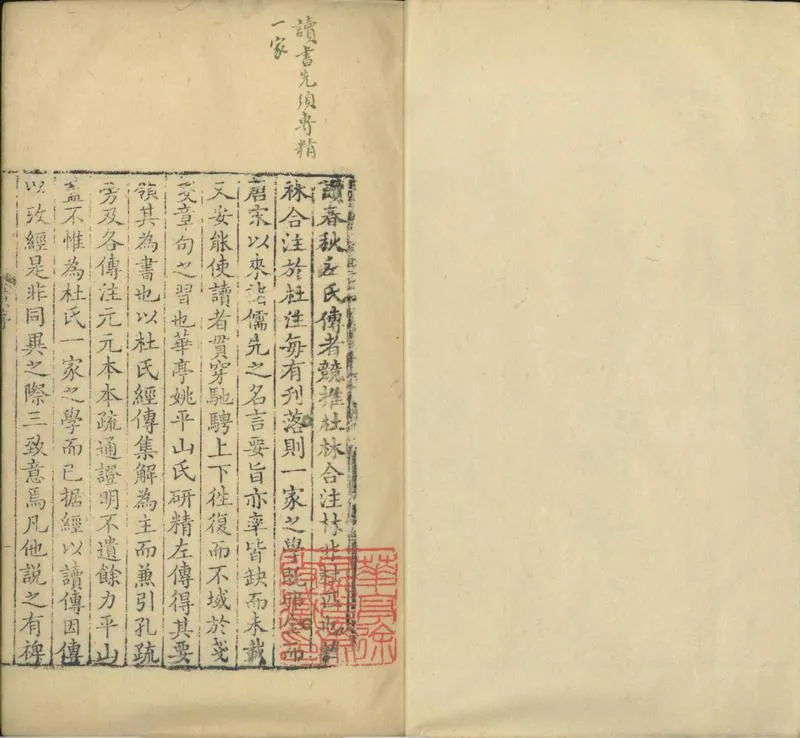 讀書先須專精
一家
讀春秋左氏傳者競推杜林合注林非杜匹也
林合注於杜注每有刋落則一家之學旣非全而
唐宋以來諸儒先之名言要旨亦率皆缺而未載
又安能使讀者貫穿馳騁上下徃復而不域於箋
文章句之習也華亭姚平山氏研精左傳得其要
領其為書也以杜氏經傳集解為主而兼引孔疏
旁及各傳注元元本本疏通證明不遺餘力平山
盖不惟為杜氏一家之學而已据經以讀傳因傳
以攷經是非同異之際三致意焉凡他說之有裨